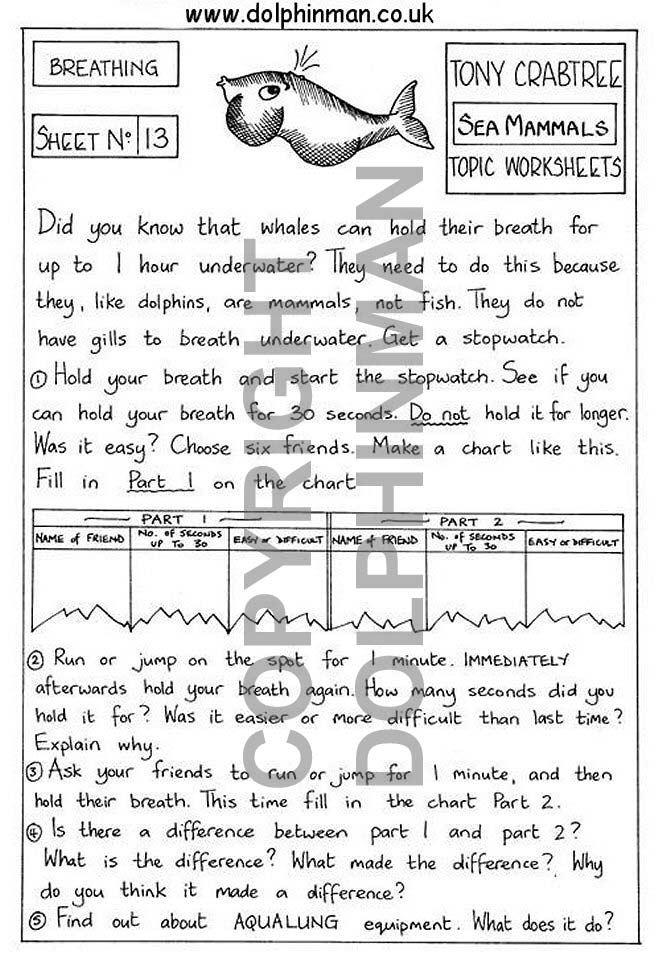 www.dolphinman.co.uk
BREATHING
SHEET No. 13
TONY CRABTREE
SEA MAMMALS
TOPIC WORKSHEETS
Did you know that whales can hold their breath for
up to 1 hour underwater? They need to do this because
they, like dolphins, are mammals, not fish. They do not
have gills to breath underwater. Get a stopwatch.
① Hold your breath and start the stopwatch. See if you
can hold your breath for 30 seconds. Do not hold it for longer.
Was it easy? Choose six friends. Make a chart like this.
Fill in Part 1 on the chart
PART 1 PART 2
NAME of FRIEND No. OF SECONDS UP TO 30 EASY or DIFFICULT NAME of FRIEND No. OF SECONDS UP TO 30 EASY or DIFFICULT
② Run or jump on the spot for 1 minute. IMMEDIATELY
afterwards hold your breath again. How many seconds did you
hold it for? Was it easier or more difficult than last time?
Explain why.
③ Ask your friends to run or jump for 1 minute, and then
hold their breath. This time fill in the chart Part 2.
④ Is there a difference between part 1 and part 2?
What is the difference? What made the difference? Why
do you think it made a difference?
⑤ Find out about AQUALUNG equipment. What does it do?
COPYRIGHT
DOLPHINMAN